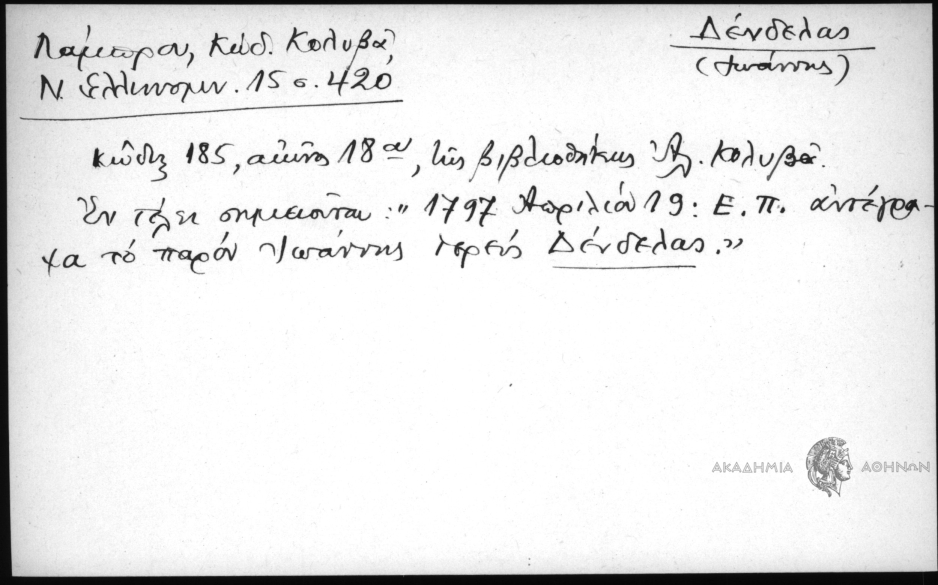 Λάμπρου, Κώδ. Κολυβᾶ
Ν. Ἑλληνομν. 15 σ. 420
Δένδελας
(Ἰωάννης)
κώδιξ 185, αἰῶνος 18ου, τῆς βιβλιοθήκης Ἀλ. Κολυβᾶ.
Ἐν τέλει σημειοῦται: „ 1797 Ἀπριλίου 19: Ε. Π. ἀντέγρα-
ψα τό παρόν Ἰωάννης ἱερεύς Δένδελας.”
ΑΚΑΔΗΜΙΑ ΑΘΗΝΩΝ